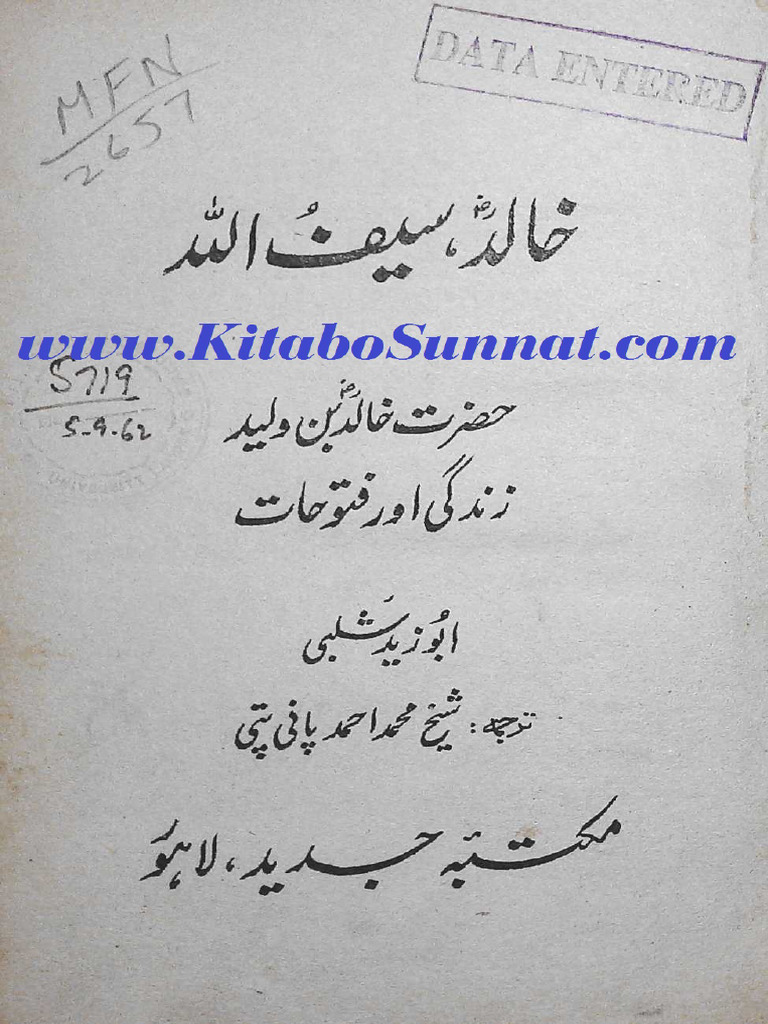 DATA ENTERED
MFN
2657
خالدؓ، سیفُ اللہ
www.KitaboSunnat.com
5719
5-9-62
حضرت خالدؓ بن ولید
زندگی اور فتوحات
ابُو زید شلبی
ترجمہ: شیخ محمد احمد پانی پتی
مکتبۂ جدید، لاہور